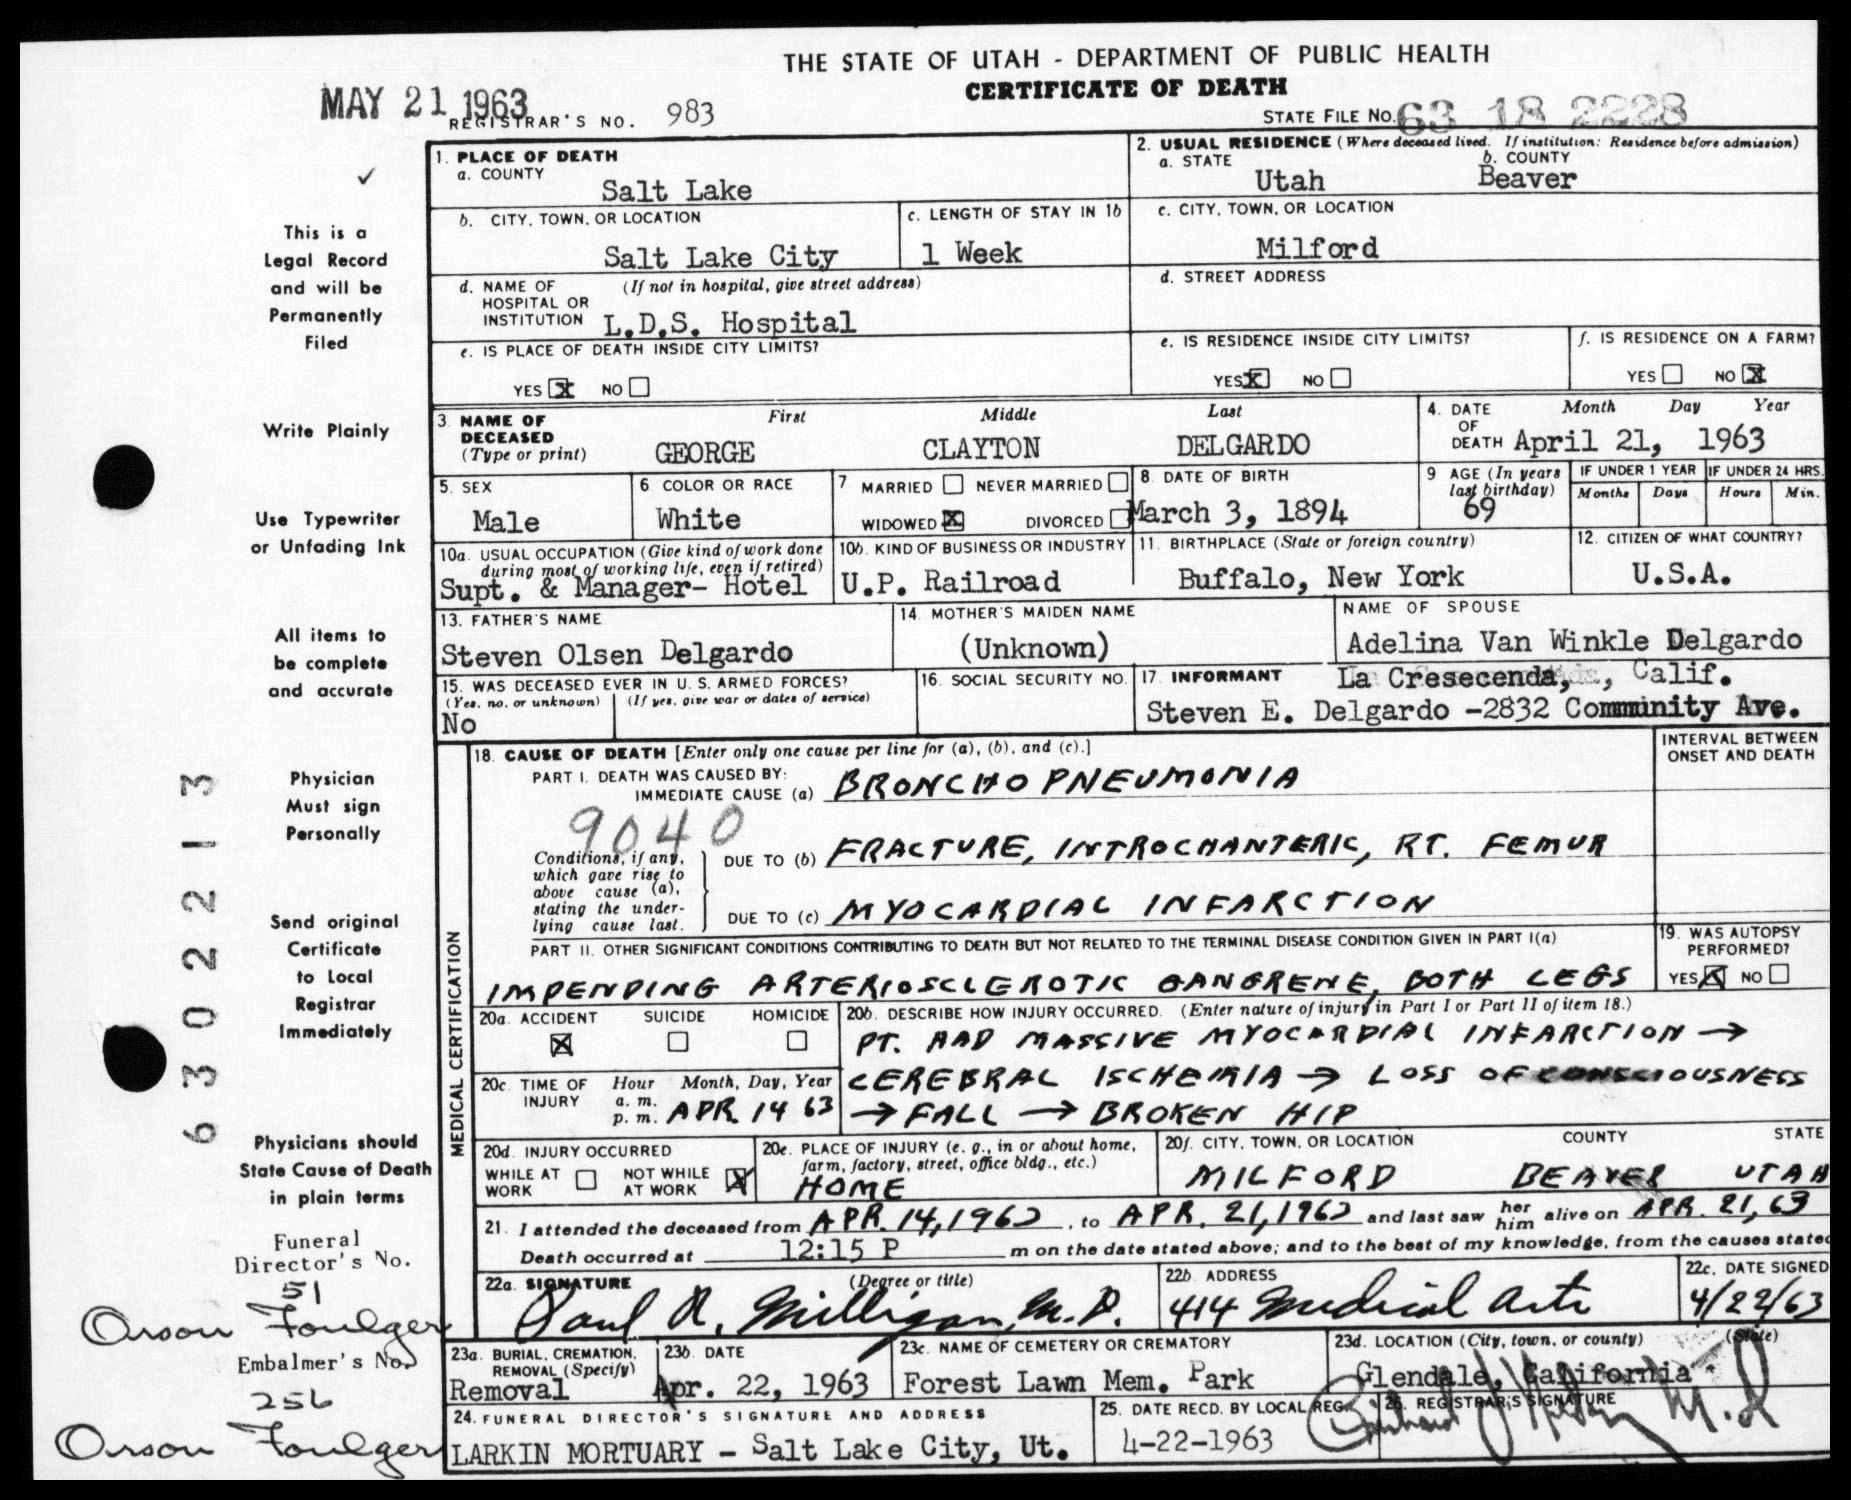 THE STATE OF UTAH - DEPARTMENT OF PUBLIC HEALTH
CERTIFICATE OF DEATH
MAY 21 1963
REGISTRAR'S NO. 983
STATE FILE NO. 63 18 2228
1. PLACE OF DEATH
a. COUNTY
Salt Lake
2. USUAL RESIDENCE (Where deceased lived. If institution: Residence before admission)
a. STATE b. COUNTY
Utah Beaver
b. CITY, TOWN, OR LOCATION
Salt Lake City
c. LENGTH OF STAY IN 1b
1 Week
c. CITY, TOWN, OR LOCATION
Milford
d. NAME OF HOSPITAL OR INSTITUTION (If not in hospital, give street address)
L.D.S. Hospital
d. STREET ADDRESS
e. IS PLACE OF DEATH INSIDE CITY LIMITS?
YES X NO
e. IS RESIDENCE INSIDE CITY LIMITS?
YES X NO
f. IS RESIDENCE ON A FARM?
YES NO X
3. NAME OF DECEASED (Type or print)
First Middle Last
GEORGE CLAYTON DELGARDO
4. DATE OF DEATH Month Day Year
April 21, 1963
5. SEX
Male
6. COLOR OR RACE
White
7 MARRIED NEVER MARRIED
WIDOWED X DIVORCED
8. DATE OF BIRTH
March 3, 1894
9 AGE (In years last birthday)
69
IF UNDER 1 YEAR IF UNDER 24 HRS.
Months Days Hours Min.
10a. USUAL OCCUPATION (Give kind of work done during most of working life, even if retired)
Supt. & Manager- Hotel
10b. KIND OF BUSINESS OR INDUSTRY
U.P. Railroad
11. BIRTHPLACE (State or foreign country)
Buffalo, New York
12. CITIZEN OF WHAT COUNTRY?
U.S.A.
13. FATHER'S NAME
Steven Olsen Delgardo
14. MOTHER'S MAIDEN NAME
(Unknown)
NAME OF SPOUSE
Adelina Van Winkle Delgardo
15. WAS DECEASED EVER IN U.S. ARMED FORCES?
(Yes, no, or unknown) (If yes, give war or dates of service)
No
16. SOCIAL SECURITY NO.
17. INFORMANT La Cresecenda, Calif.
Steven E. Delgardo -2832 Community Ave.
MEDICAL CERTIFICATION
18. CAUSE OF DEATH [Enter only one cause per line for (a), (b), and (c).]
INTERVAL BETWEEN ONSET AND DEATH
PART I. DEATH WAS CAUSED BY:
IMMEDIATE CAUSE (a) BRONCHOPNEUMONIA
9040
Conditions, if any, which gave rise to above cause (a), stating the underlying cause last.
DUE TO (b) FRACTURE, INTROCHANTERIC, RT. FEMUR
DUE TO (c) MYOCARDIAL INFARCTION
PART II. OTHER SIGNIFICANT CONDITIONS CONTRIBUTING TO DEATH BUT NOT RELATED TO THE TERMINAL DISEASE CONDITION GIVEN IN PART I(a)
IMPENDING ARTERIOSCLEROTIC GANGRENE, BOTH LEGS
19. WAS AUTOPSY PERFORMED?
YES X NO
20a. ACCIDENT SUICIDE HOMICIDE
X
20b. DESCRIBE HOW INJURY OCCURRED. (Enter nature of injury in Part I or Part II of item 18.)
PT. HAD MASSIVE MYOCARDIAL INFARCTION →
CEREBRAL ISCHEMIA → LOSS OF CONSCIOUSNESS
→ FALL → BROKEN HIP
20c. TIME OF INJURY Hour Month, Day, Year
a. m.
p. m. APR. 14 63
20d. INJURY OCCURRED
WHILE AT WORK NOT WHILE AT WORK X
20e. PLACE OF INJURY (e. g., in or about home, farm, factory, street, office bldg., etc.)
HOME
20f. CITY, TOWN, OR LOCATION COUNTY STATE
MILFORD BEAVER UTAH
21. I attended the deceased from APR. 14, 1963, to APR. 21, 1963 and last saw her him alive on APR. 21, 63
Death occurred at 12:15 P m on the date stated above; and to the best of my knowledge, from the causes stated
22a. SIGNATURE (Degree or title)
Paul R. Milligan, M.D.
22b. ADDRESS
414 Medical Arts
22c. DATE SIGNED
4/22/63
23a. BURIAL, CREMATION, REMOVAL (Specify)
Removal
23b. DATE
Apr. 22, 1963
23c. NAME OF CEMETERY OR CREMATORY
Forest Lawn Mem. Park
23d. LOCATION (City, town, or county) (State)
Glendale, California
24. FUNERAL DIRECTOR'S SIGNATURE AND ADDRESS
LARKIN MORTUARY - Salt Lake City, Ut.
25. DATE RECD. BY LOCAL REG.
4-22-1963
26. REGISTRAR'S SIGNATURE
M.D
✓
This is a
Legal Record
and will be
Permanently
Filed
Write Plainly
Use Typewriter
or Unfading Ink
All items to
be complete
and accurate
Physician
Must sign
Personally
Send original
Certificate
to Local
Registrar
Immediately
Physicians should
State Cause of Death
in plain terms
630 2213
Funeral
Director's No.
51
Orson Foulger
Embalmer's No.
256
Orson Foulger